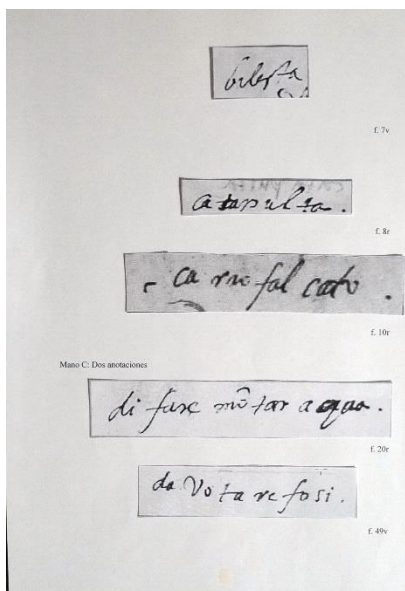 balesta
f. 7v
catapulta.
f. 8r
carro falcato.
f. 10r
Mano C: Dos anotaciones
di fare mõtar aqua.
f. 20r
da Votare fosi.
f. 49v